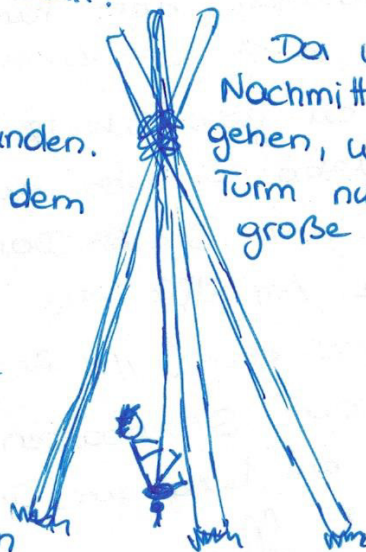 unden.
dem
Da
Nachmitt
gehen, u
Turm nu
große